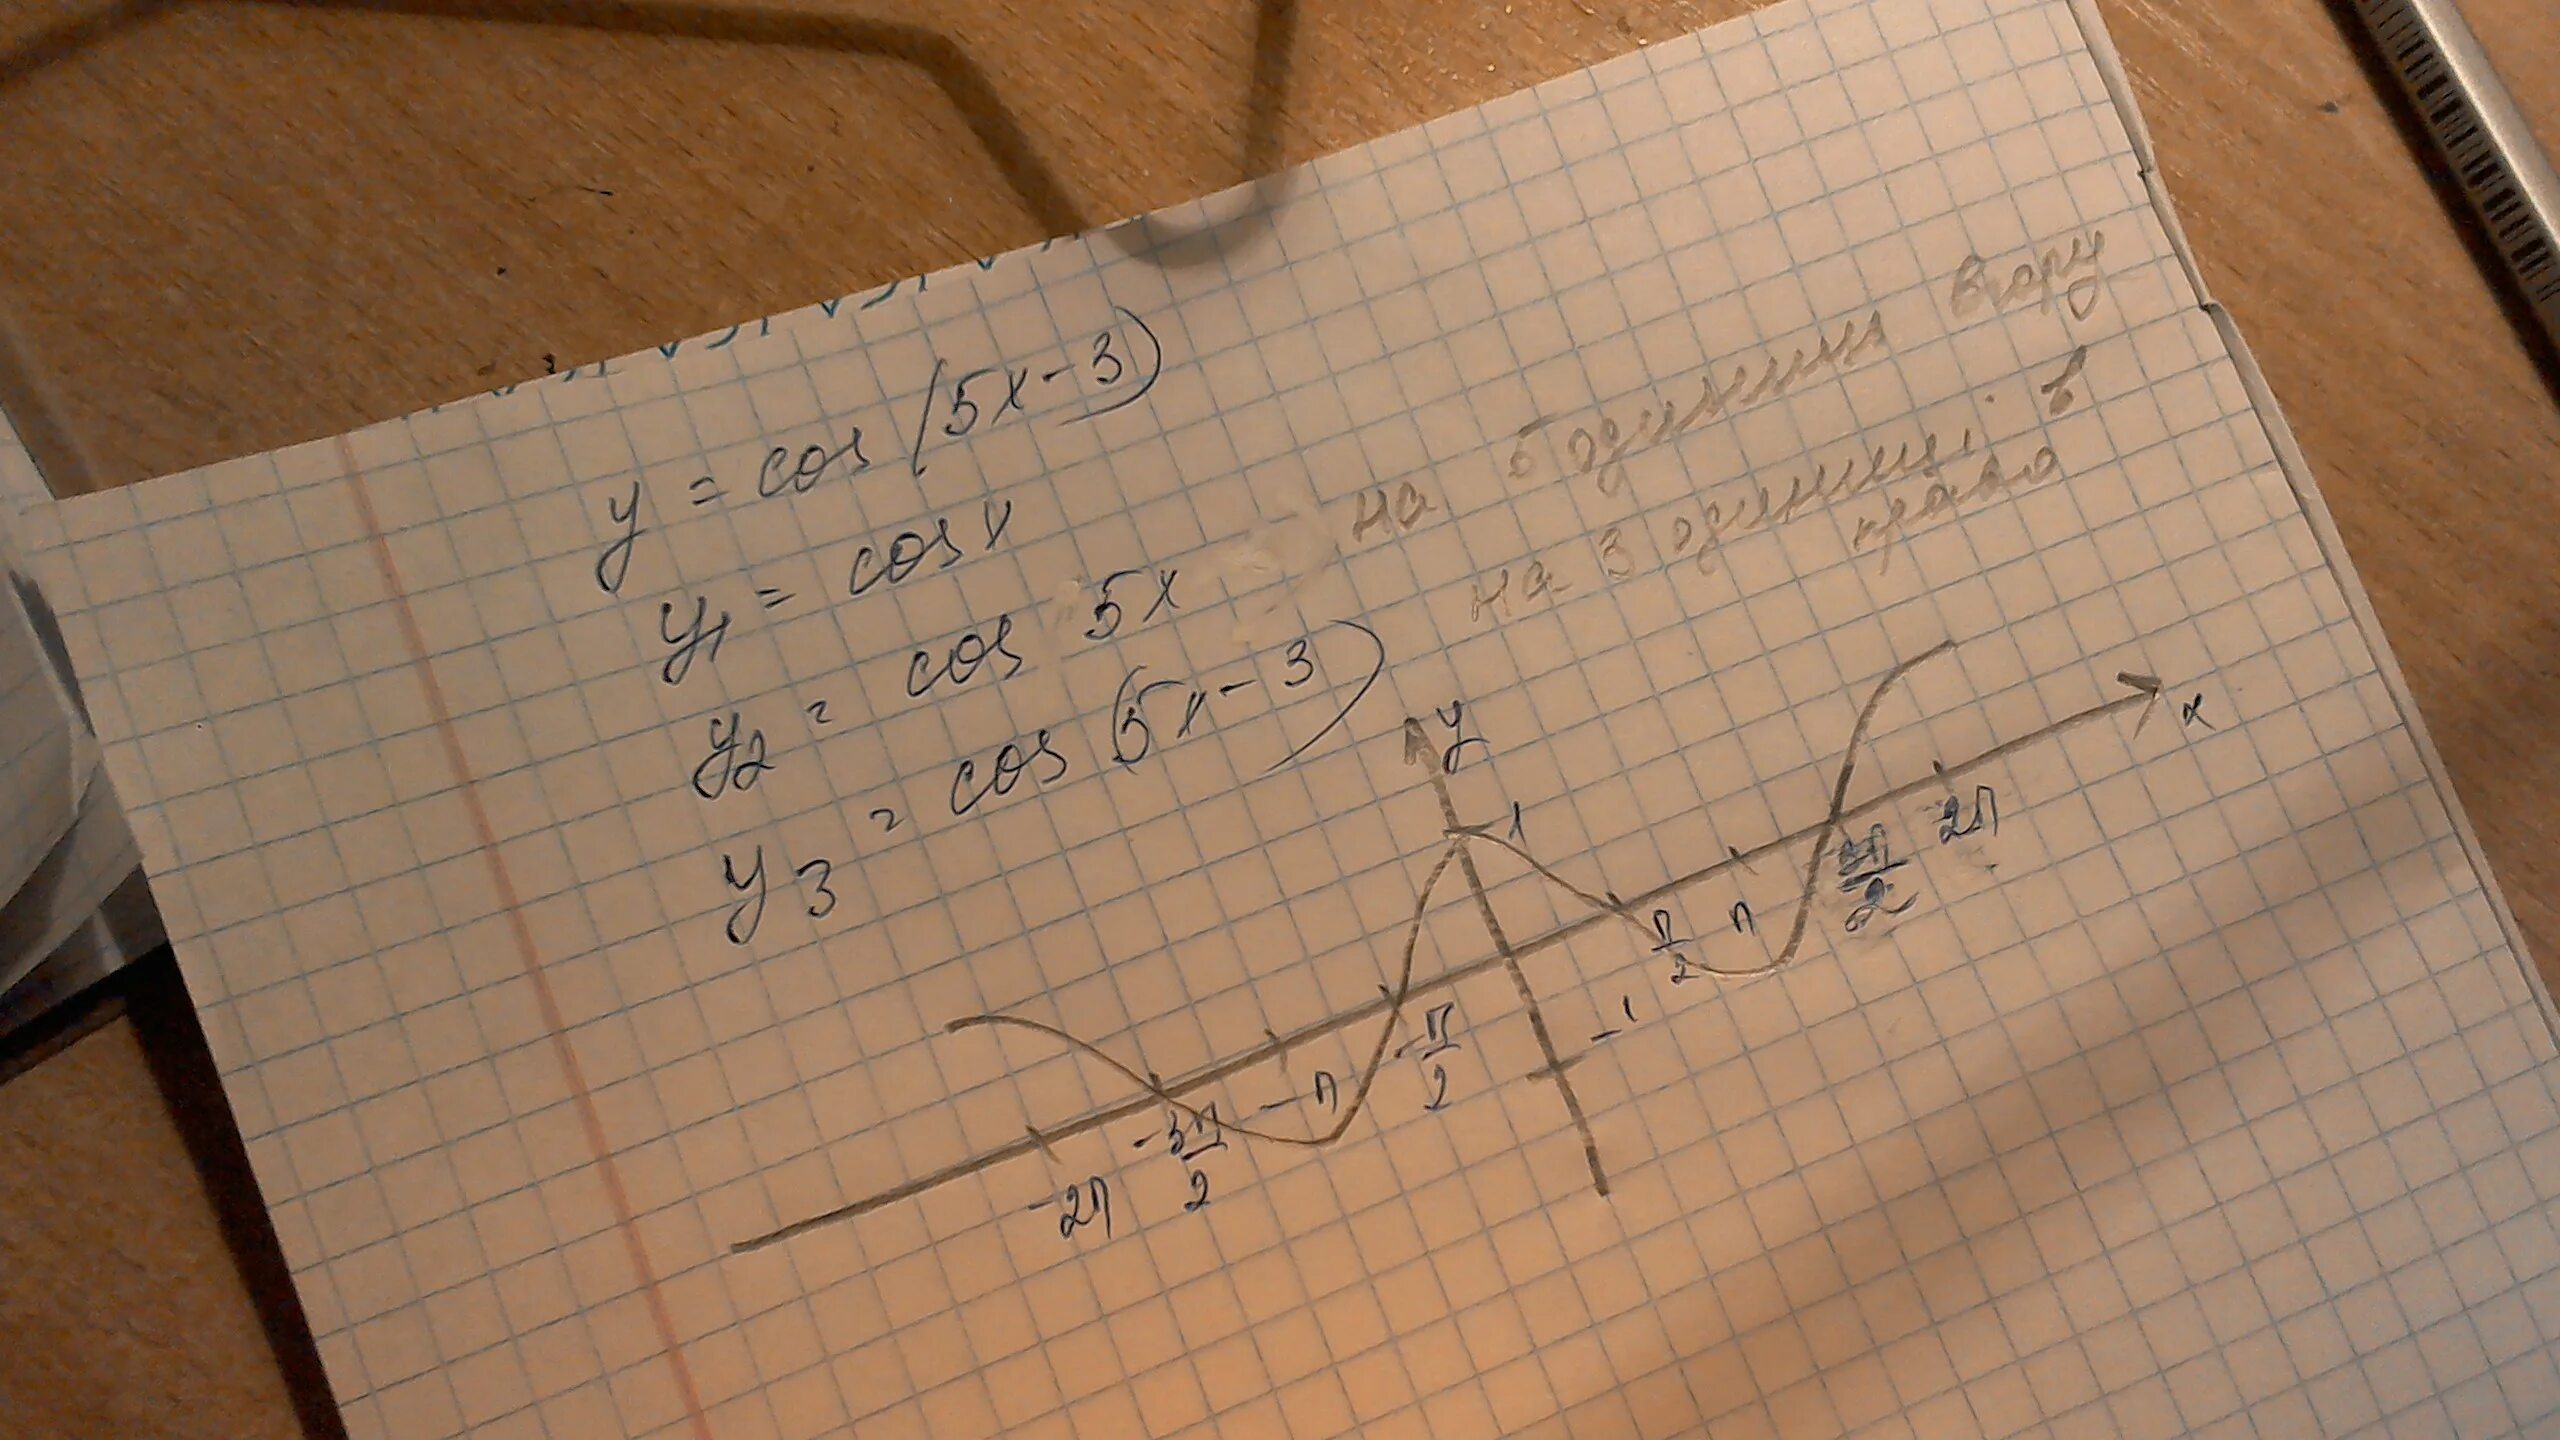 y = cos (5x-3)
y1 = cos x
y2 = cos 5x на 5 одиниць вгору
y3 = cos (5x-3) на 3 одиниці в
право
y
x
1
-1
-2π -3π/2 -π -π/2 π/2 π 3π/2 2π